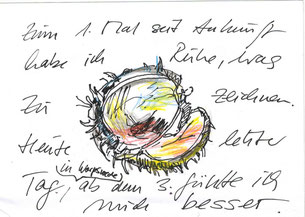 Zum 1. Mal seit Ankunft
habe ich Ruhe, was
zu zeichnen.
Heute letzter
(in Worpswede)
Tag, ab dem 3. fühlte ich
mich besser